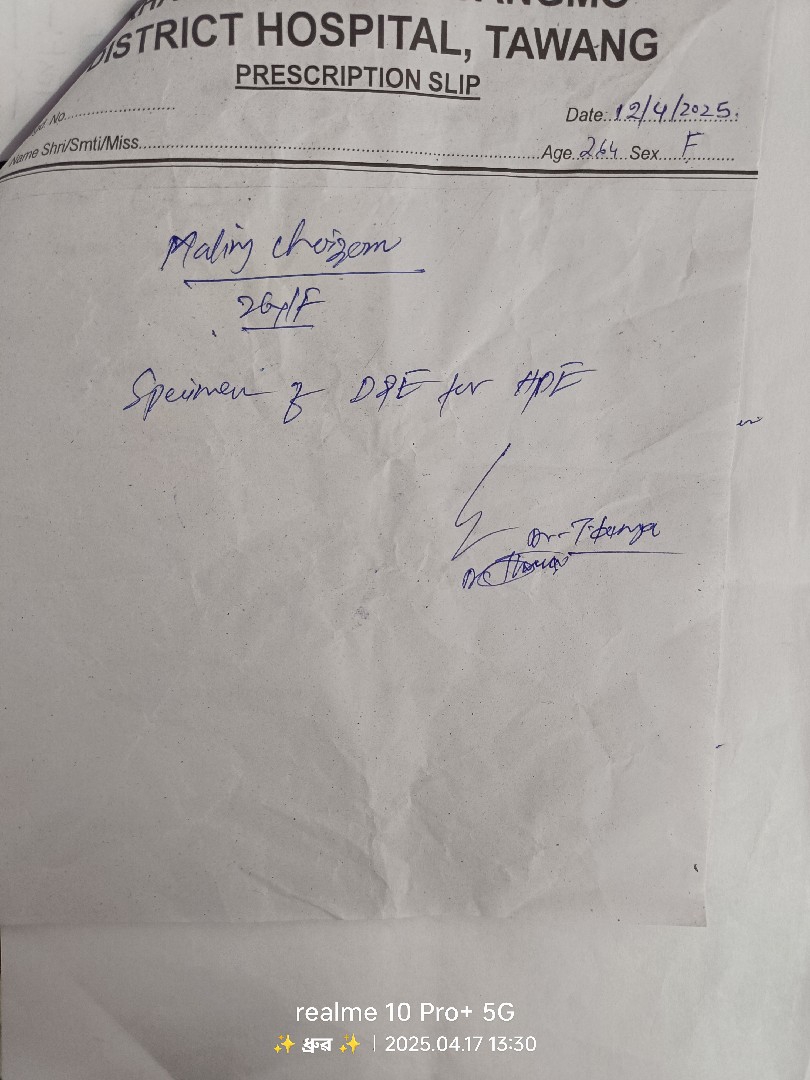 DISTRICT HOSPITAL, TAWANG
PRESCRIPTION SLIP
No.
Date. 12/4/2025.
Name Shri/Smti/Miss
Age 26y Sex F
Maling Choizom
26y/F
Specimen of D&E for HPE
Dr.
realme 10 Pro+ 5G
✨ ধ্রুব ✨ | 2025.04.17 13:30